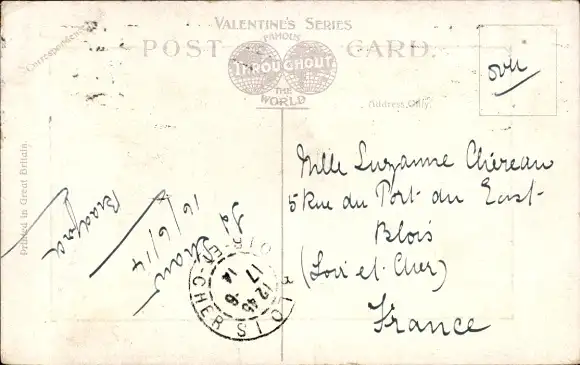 Correspondence
VALENTINE'S SERIES
FAMOUS
POST CARD.
THROUGHOUT
THE
WORLD
Address Only.
Printed in Great Britain.
over
Mlle Suzanne Chéreau
5 Rue du Port du East
Blois
(Loir et Cher)
France
Bradford
16/6/14
BLOIS
LOIR-ET-CHER
12 45
17 -6
14